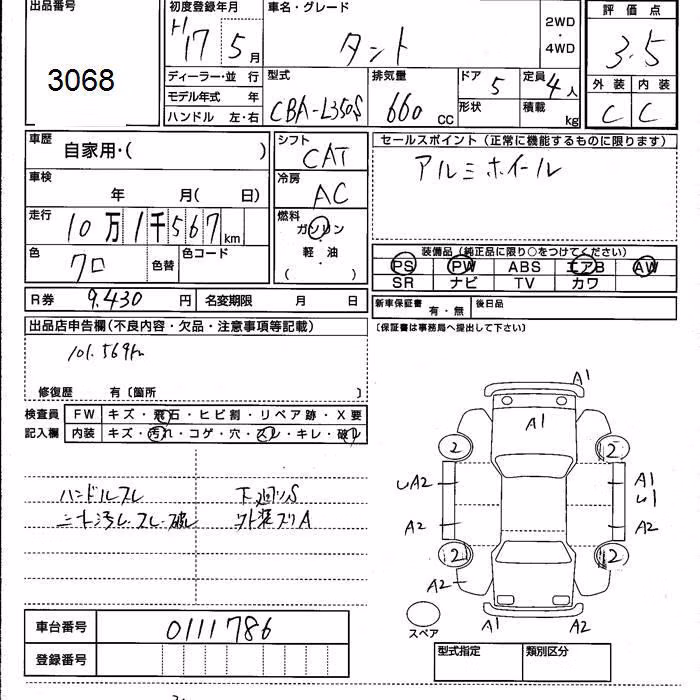 出品番号 初度登録年月 車名・グレード 評価点
3068 H17 5月 タント 2WD・4WD 3.5
ディーラー・並行 型式 排気量 ドア 5 定員 4人 外装 内装
モデル年式 年 CBA-L350S 660cc 形状 積載 kg C C
ハンドル 左・右
車歴 自家用・( ) シフト CAT セールスポイント(正常に機能するものに限ります)
車検 年 月( 日) 冷房 AC アルミホイール
走行 10万1千567km 燃料 ガソリン・軽油・( )
色 クロ 色替 色コード 装備品(純正品に限り○をつけてください)
PS PW ABS エアB AW
SR ナビ TV カワ
R券 9,430円 名変期限 月 日 新車保証書 有・無 後日品
出品店申告欄(不良内容・欠品・注意事項等記載) (保証書は事務局へ提出して下さい)
101.569km
修復歴 有〔箇所 〕
検査員 FW キズ・飛石・ヒビ割・リペア跡・X要
記入欄 内装 キズ・汚れ・コゲ・穴・スレ・キレ・破れ
ハンドルスレ 下廻りS
シート汚レ・スレ・破レ 外装スリA
A1
A1
2 2
A2 A1
A2 A2
2 2
A2
A1 A2
スペア
車台番号 0111786
登録番号
型式指定 類別区分